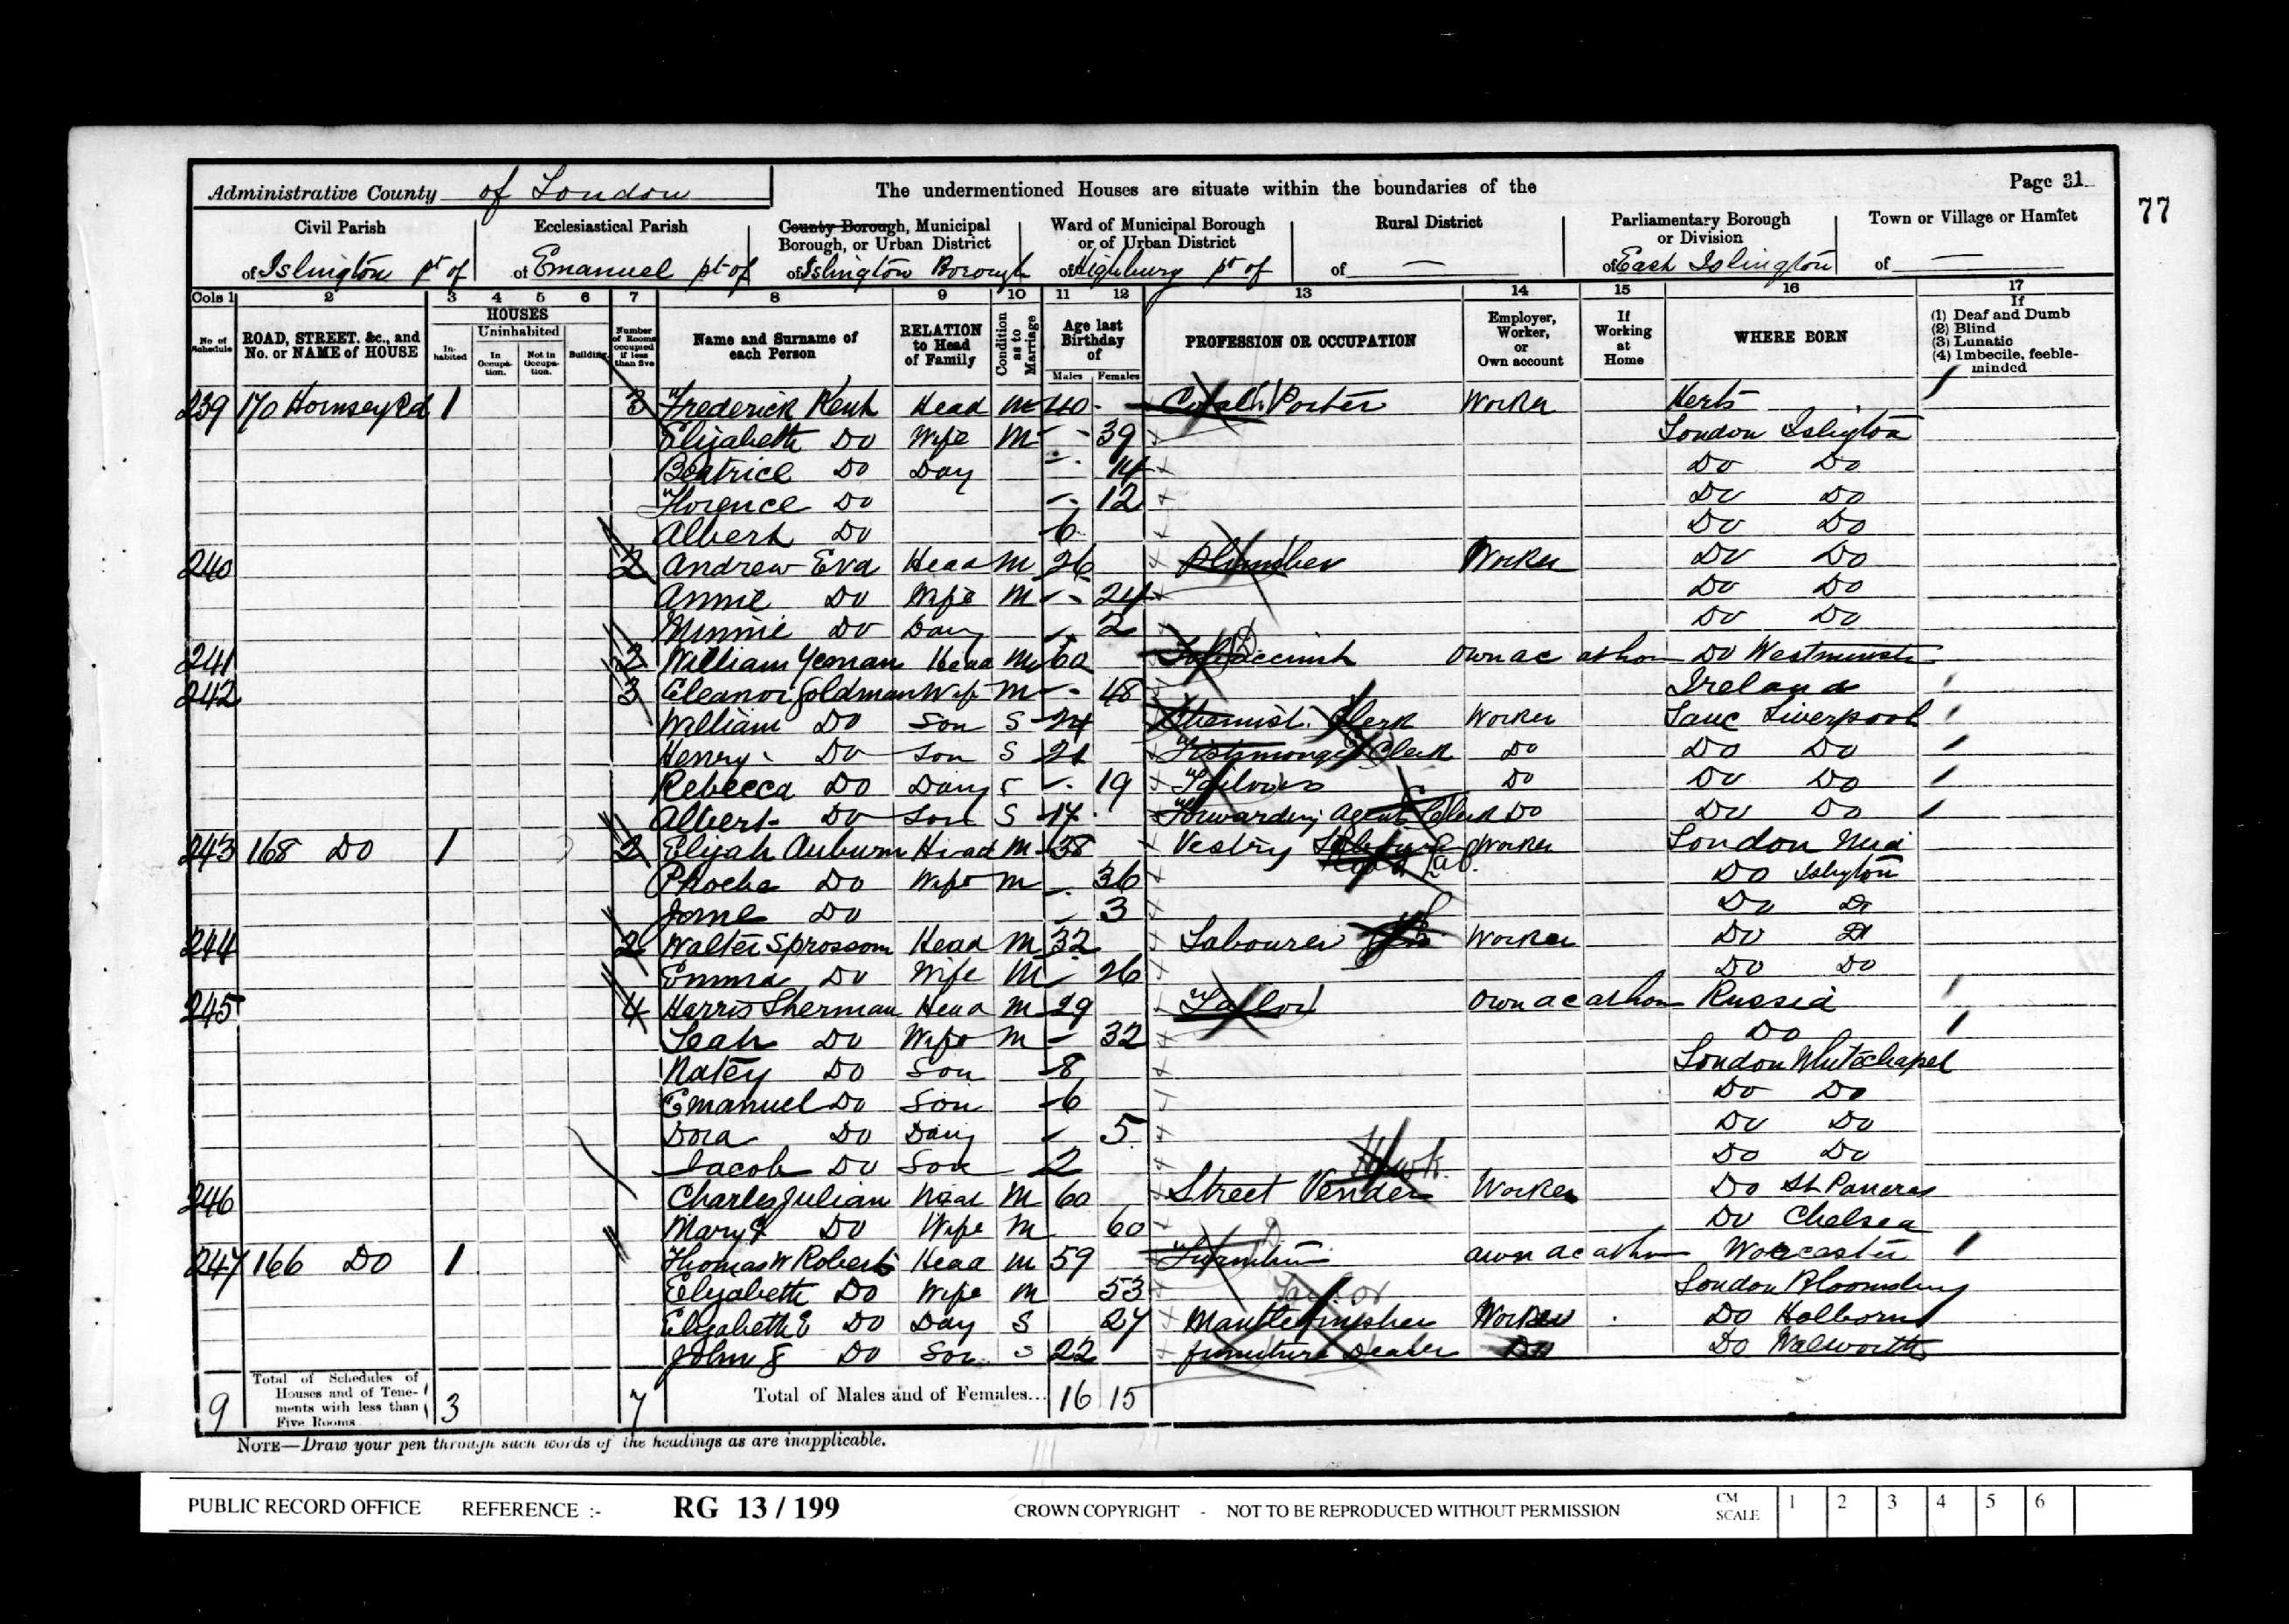 Administrative County of London
The undermentioned Houses are situate within the boundaries of the
Page 31
77
Civil Parish
of Islington pt of
Ecclesiastical Parish
of Emanuel pt of
County Borough, Municipal
Borough, or Urban District
of Islington Borough
Ward of Municipal Borough
or of Urban District
of Highbury pt of
Rural District
of —
Parliamentary Borough
or Division
of East Islington
Town or Village or Hamlet
of —
Cols 1 2 3 4 5 6 7 8 9 10 11 12 13 14 15 16 17
No of Schedule
ROAD, STREET, &c., and No. or NAME of HOUSE
HOUSES
Inhabited
Uninhabited
In Occupation.
Not in Occupation.
Building
Number of Rooms occupied if less than five
Name and Surname of each Person
RELATION to Head of Family
Condition as to Marriage
Age last Birthday of
Males Females
PROFESSION OR OCCUPATION
Employer, Worker, or Own account
If Working at Home
WHERE BORN
If
(1) Deaf and Dumb
(2) Blind
(3) Lunatic
(4) Imbecile, feeble-minded
239 170 Hornsey Rd 1 3 Frederick Kent Head M 40 Porter Worker Herts
Elizabeth Do Wife M 39 London Islington
Beatrice Do Daug 14 Do Do
Florence Do 12 Do Do
Albert Do 6 Do Do
240 2 Andrew Eva Head M 26 Plumber Worker Do Do
Annie Do Wife M 24 Do Do
Minnie Do Daug 2 Do Do
241 2 William Yeoman Head M 60 Own ac at hom Do Westminster
242 3 Eleanor Goldman Wife M 48 Ireland
William Do Son S 24 Chemist Clerk Worker Lanc Liverpool
Henry Do Son S 21 Fishmonger Clerk Do Do Do
Rebecca Do Daug S 19 Tailoress Do Do Do
Albert Do Son S 17 Forwarding Agent Clerk Do Do Do
243 168 Do 1 2 Elijah Auburn Head M 38 Vestry Worker London
Road Lab.
Phoebe Do Wife M 36 Do Islington
Jane Do 3 Do Do
244 2 Walter Sprossom Head M 32 Labourer Worker Do Do
Emma Do Wife M 26 Do Do
245 4 Harris Sherman Head M 29 Tailor Own ac at hom Russia
Leah Do Wife M 32 Do
Natey Do Son 8 London Whitechapel
Emanuel Do Son 6 Do Do
Dora Do Daug 5 Do Do
Jacob Do Son 2 Do Do
Hawk.
246 Charles Julian Head M 60 Street Vender Worker Do St Pancras
Mary Do Wife M 60 Do Chelsea
247 166 Do 1 Thomas W Roberts Head M 59 Furniture own ac at hom Worcester
Elizabeth Do Wife M 53 London Bloomsbury
Tailor
Elizabeth E Do Daug S 27 Mantle finisher Worker Do Holborn
John Do Son S 22 furniture Dealer Do Do Walworth
9 Total of Schedules of Houses and of Tenements with less than Five Rooms 3 7 Total of Males and of Females... 16 15
NOTE—Draw your pen through such words of the headings as are inapplicable.
PUBLIC RECORD OFFICE REFERENCE :- RG 13 / 199 CROWN COPYRIGHT - NOT TO BE REPRODUCED WITHOUT PERMISSION CM SCALE 1 2 3 4 5 6